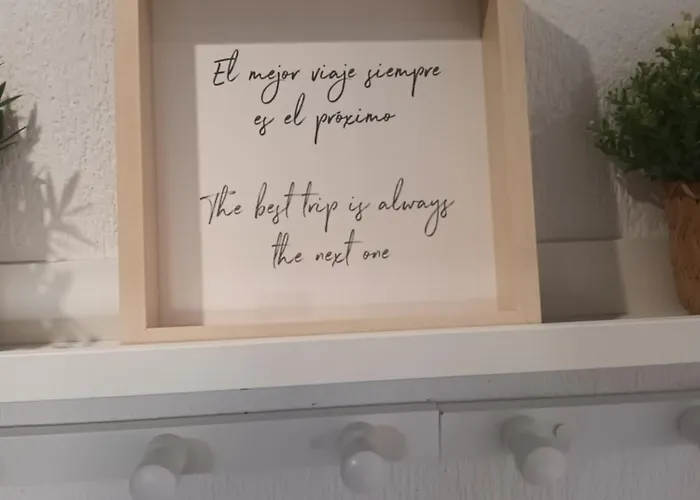 El mejor viaje siempre
es el próximo
The best trip is always
the next one